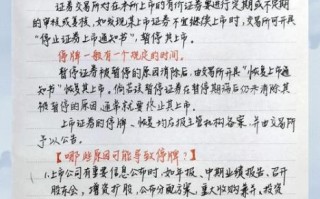 证券交易所对在本所上市的有价证券要进行定期或不定期
的审核或复核,如发现某上市证券不宜继续上市时,交易所可开具
“停止证券上市通知书”,暂停其上市。
停牌一般有一个规定的时间。
暂停证券被暂停的原因消除后,由交易所开具“恢复上市通
知书”恢复其上市。倘若该暂停证券在暂停期满后仍未消除其
被暂停的原因,通常就要终止其上市。
上市证券的停牌、恢复均应报主管机构备案,并由交易所
予以公告。
【哪些原因可能导致停牌?】
1.上市公司有重要信息公布时,如年报、中期业绩报告、召开
股东会,增资扩股,公布分配方案,重大收购兼并、投资